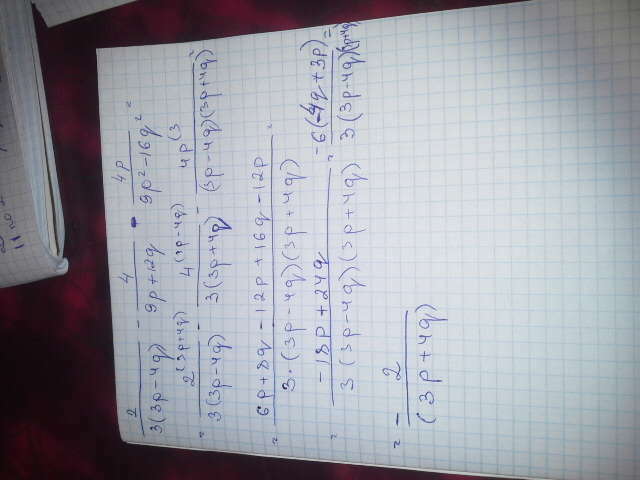 11 по 2
2/(3(3p-4q)) - 4/(9p+12q) - 4p/(9p²-16q²) =
= 2^(3p+4q)/(3(3p-4q)) - 4^(3p-4q)/(3(3p+4q)) - 4p^(3/((3p-4q)(3p+4q)) =
= (6p+8q-12p+16q-12p)/(3·(3p-4q)(3p+4q)) =
= (-18p+24q)/(3(3p-4q)(3p+4q)) = -6(-4q+3p)/(3(3p-4q)(3p+4q)) =
= - 2/((3p+4q))